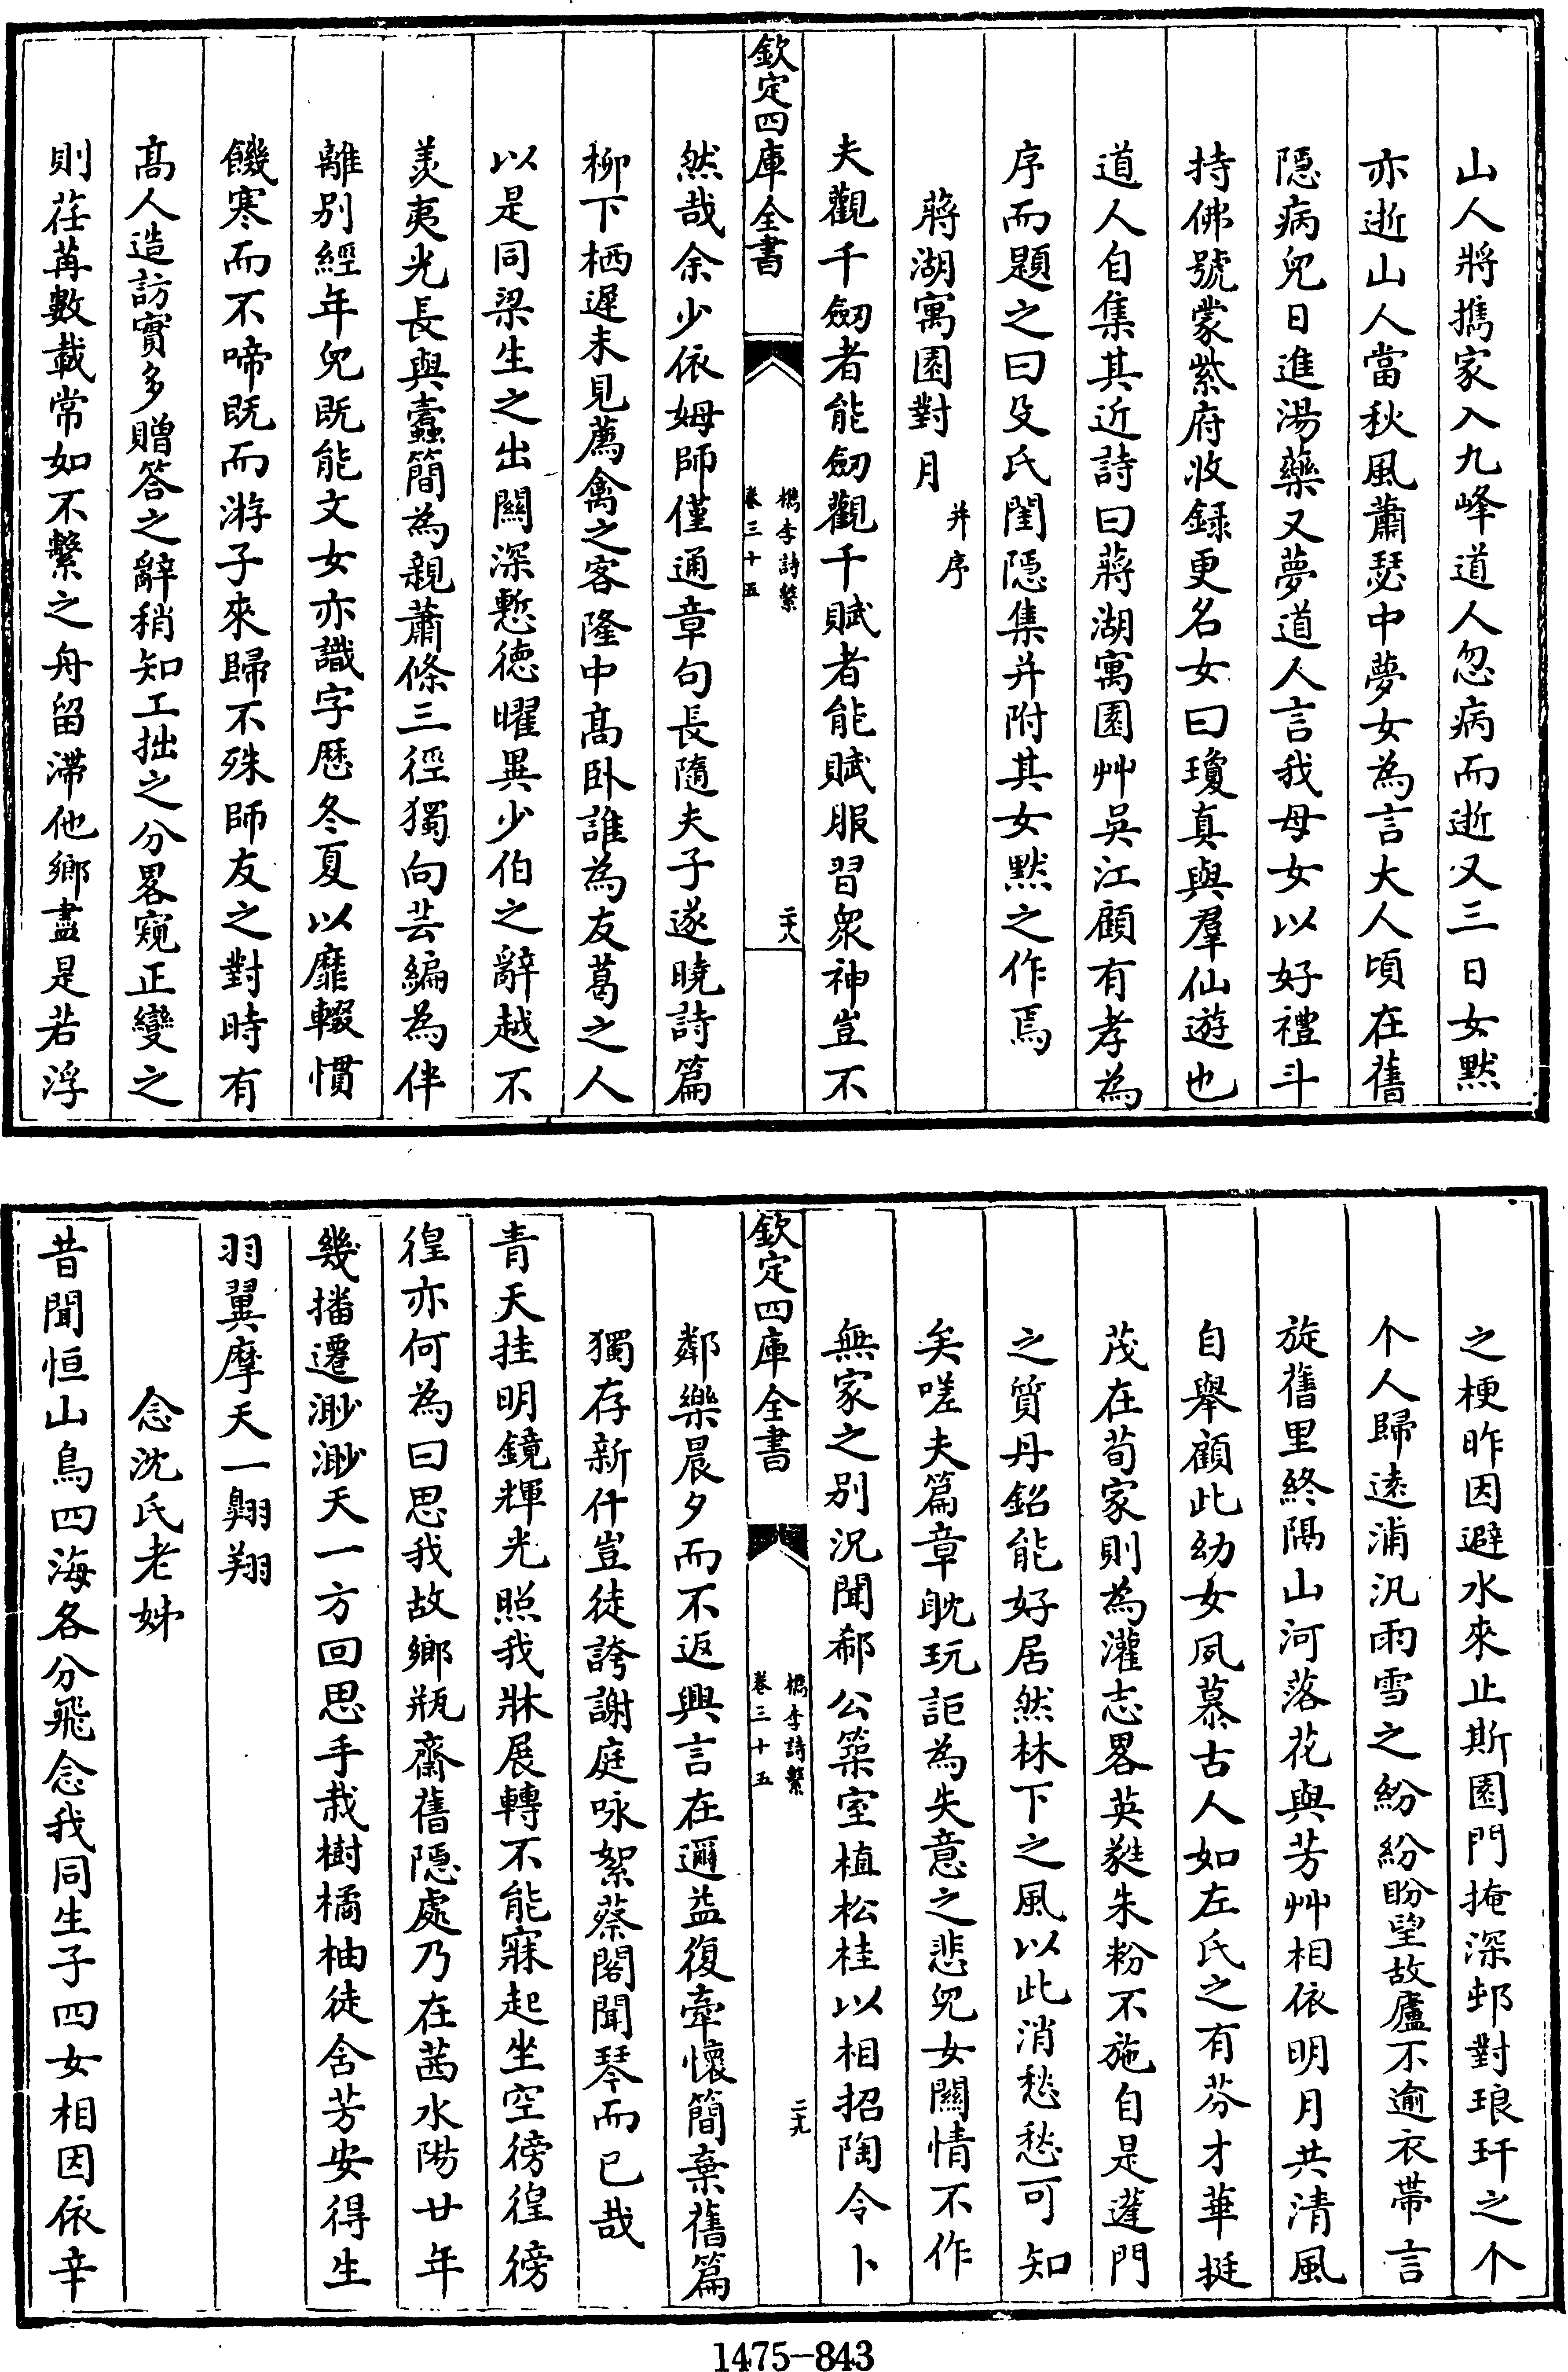 山人將攜家入九峰道人忽病而逝又三日女黙
亦逝山人當秋風蕭瑟中夢女為言大人頃在舊
隱病兒日進湯藥又夢道人言我母女以好禮斗
持佛號蒙紫府收録更名女曰瓊真與羣仙遊也
道人自集其近詩曰蔣湖寓園艸吳江顧有孝為
序而題之曰殳氏閨隱集并附其女黙之作焉
蔣湖寓園對月并序
夫觀千劒者能劒觀千賦者能賦服習衆神豈不
欽定四庫全書
檇李詩繫
卷三十五
二十八
然哉余少依姆師僅通章句長隨夫子遂曉詩篇
柳下栖遲未見薦禽之客隆中高卧誰為友葛之人
以是同梁生之出關深慙德曜異少伯之辭越不
羨夷光長與蠹簡為親蕭條三徑獨向芸編為伴
離別經年兒既能文女亦識字歴冬夏以靡輟慣
饑寒而不啼既而游子來歸不殊師友之對時有
高人造訪實多贈答之辭稍知工拙之分畧窺正變之
則荏苒數載常如不繫之舟留滯他鄉盡是若浮
之梗昨因避水來止斯園門掩深邨對琅玕之个
个人歸逺浦汎雨雪之紛紛盼望故廬不逾衣帶言
旋舊里終隔山河落花與芳艸相依明月共清風
自舉顧此幼女夙慕古人如左氏之有芬才華挺
茂在荀家則為灌志畧英甤朱粉不施自是蓬門
之質丹鉛能好居然林下之風以此消愁愁可知
矣嗟夫篇章耽玩詎為失意之悲兒女關情不作
無家之別況聞郗公築室植松桂以相招陶令卜
欽定四庫全書
檇李詩繫
卷三十五
二十九
鄰樂晨夕而不返興言在邇益復牽懷簡棄舊篇
獨存新什豈徒誇謝庭咏絮蔡閣聞琴而已哉
青天挂明鏡輝光照我牀展轉不能寐起坐空徬徨徬
徨亦何為曰思我故鄉瓶齋舊隱處乃在茜水陽廿年
幾播遷渺渺天一方回思手栽樹橘柚徒含芳安得生
羽翼摩天一翺翔
念沈氏老姊
昔聞恒山鳥四海各分飛念我同生子四女相因依辛
1475-843